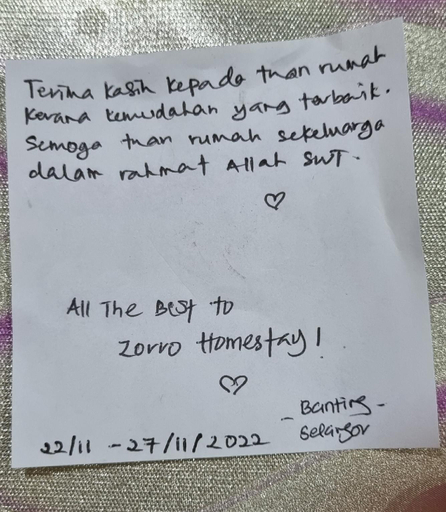 Terima kasih kepada tuan rumah
kerana kemudahan yang terbaik.
Semoga tuan rumah sekeluarga
dalam rahmat Allah SWT.
♡
All The Best to
Zorro Homestay!
♡
- Banting -
Selangor
22/11 - 27/11/2022